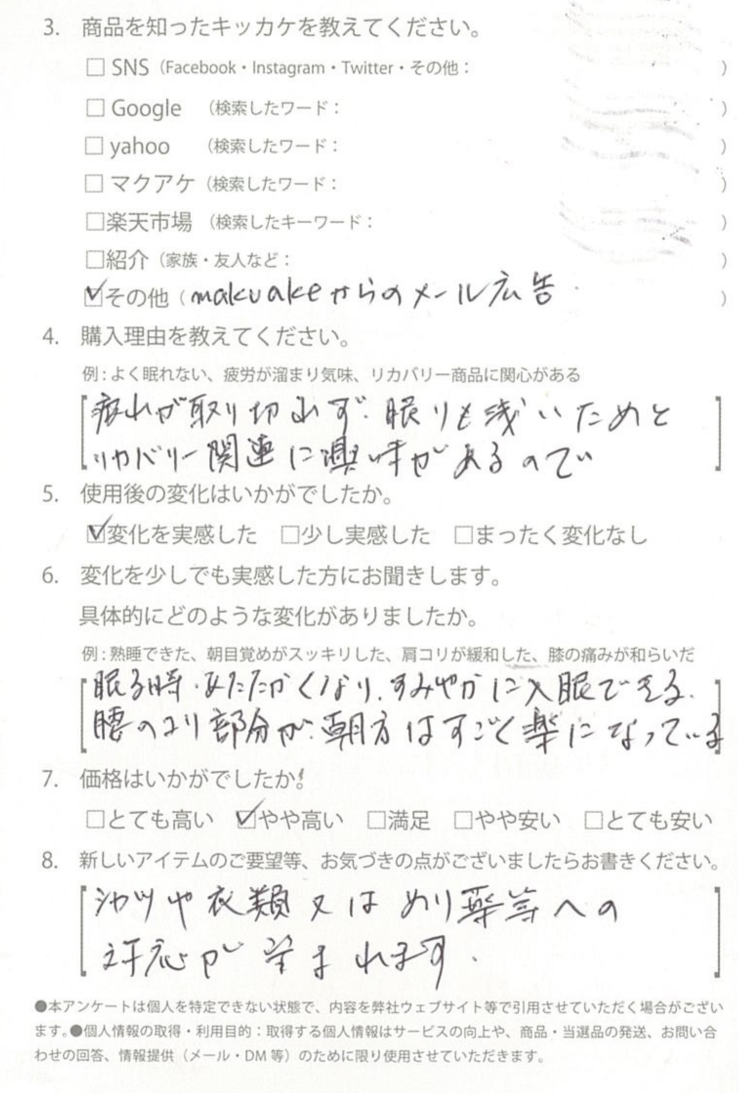 3. 商品を知ったキッカケを教えてください。
□ SNS（Facebook・Instagram・Twitter・その他： ）
□ Google （検索したワード： ）
□ yahoo （検索したワード： ）
□ マクアケ（検索したワード： ）
□楽天市場 （検索したキーワード： ）
□紹介（家族・友人など： ）
☑その他（makuakeからのメール広告 ）
4. 購入理由を教えてください。
例：よく眠れない、疲労が溜まり気味、リカバリー商品に関心がある
疲れが取り切れず、眠りも浅いためと
リカバリー関連に興味があるので
5. 使用後の変化はいかがでしたか。
☑変化を実感した □少し実感した □まったく変化なし
6. 変化を少しでも実感した方にお聞きします。
具体的にどのような変化がありましたか。
例：熟睡できた、朝目覚めがスッキリした、肩コリが緩和した、膝の痛みが和らいだ
眠る時、あたたかくなり、すみやかに入眠できる。
腰のコリ部分が、朝方はすごく楽になっている
7. 価格はいかがでしたか。
□とても高い ☑やや高い □満足 □やや安い □とても安い
8. 新しいアイテムのご要望等、お気づきの点がございましたらお書きください。
シャツや衣類又はぬり薬等への
対応が望まれます。
●本アンケートは個人を特定できない状態で、内容を弊社ウェブサイト等で引用させていただく場合がござい
ます。●個人情報の取得・利用目的：取得する個人情報はサービスの向上や、商品・当選品の発送、お問い合
わせの回答、情報提供（メール・DM 等）のために限り使用させていただきます。